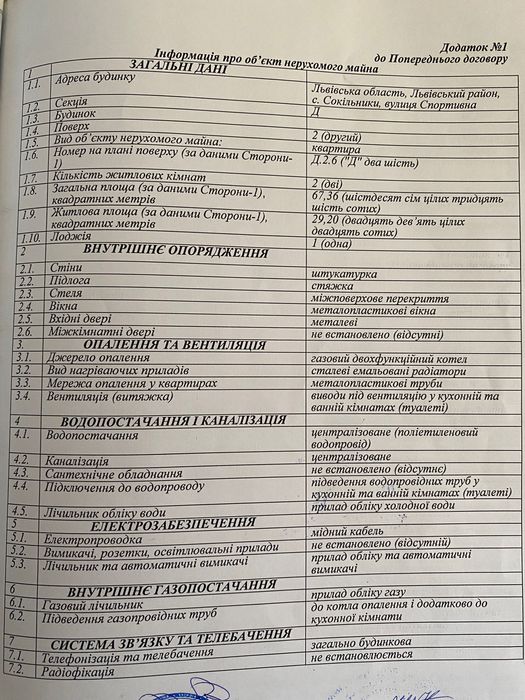 Додаток №1
до Попереднього договору
Інформація про об'єкт нерухомого майна
1 ЗАГАЛЬНІ ДАНІ
1.1. Адреса будинку
Львівська область, Львівський район,
с. Сокільники, вулиця Спортивна
1.2. Секція
Д
1.3. Будинок
1.4. Поверх
2 (другий)
1.5. Вид об'єкту нерухомого майна:
квартира
1.6. Номер на плані поверху (за даними Сторони-
1)
Д.2.6 ("Д" два шість)
1.7. Кількість житлових кімнат
2 (дві)
1.8. Загальна площа (за даними Сторони-1),
квадратних метрів
67,36 (шістдесят сім цілих тридцять
шість сотих)
1.9. Житлова площа (за даними Сторони-1),
квадратних метрів
29,20 (двадцять дев'ять цілих
двадцять сотих)
1.10. Лоджія
1 (одна)
2 ВНУТРІШНЄ ОПОРЯДЖЕННЯ
2.1. Стіни
штукатурка
2.2. Підлога
стяжка
2.3. Стеля
міжповерхове перекриття
2.4. Вікна
металопластикові вікна
2.5. Вхідні двері
металеві
2.6. Міжкімнатні двері
не встановлено (відсутні)
3. ОПАЛЕННЯ ТА ВЕНТИЛЯЦІЯ
3.1. Джерело опалення
газовий двохфункційний котел
3.2. Вид нагріваючих приладів
сталеві емальовані радіатори
3.3. Мережа опалення у квартирах
металопластикові труби
3.4. Вентиляція (витяжка)
виводи під вентиляцію у кухонній та
ванній кімнатах (туалеті)
4 ВОДОПОСТАЧАННЯ І КАНАЛІЗАЦІЯ
4.1. Водопостачання
централізоване (поліетиленовий
водопровід)
4.2. Каналізація
централізоване
4.3. Сантехнічне обладнання
не встановлено (відсутнє)
4.4. Підключення до водопроводу
підведення водопровідних труб у
кухонній та ванній кімнатах (туалеті)
4.5. Лічильник обліку води
прилад обліку холодної води
5 ЕЛЕКТРОЗАБЕЗПЕЧЕННЯ
5.1. Електропроводка
мідний кабель
5.2. Вимикачі, розетки, освітлювальні прилади
не встановлено (відсутній)
5.3. Лічильник та автоматичні вимикачі
прилад обліку та автоматичні
вимикачі
6 ВНУТРІШНЄ ГАЗОПОСТАЧАННЯ
6.1. Газовий лічильник
прилад обліку газу
6.2. Підведення газопровідних труб
до котла опалення і додатково до
кухонної кімнати
7 СИСТЕМА ЗВ'ЯЗКУ ТА ТЕЛЕБАЧЕННЯ
7.1. Телефонізація та телебачення
загально будинкова
7.2. Радіофікація
не встановлюється